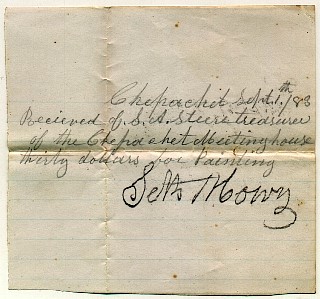 Chepachet Sept. 1th/83
Recieved of S. A. Steere treasurer
of the Chepachet Meeting house
thirty dollars for Painting
Seth Mowry